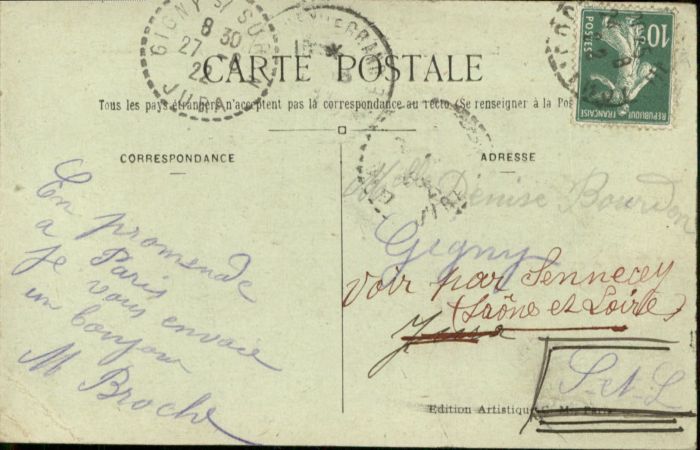 GIGNY S/ SUR
8 30
27
22
JURA
CARTE POSTALE
Tous les pays étrangers n'acceptent pas la correspondance au recto (Se renseigner à la Pos
CORRESPONDANCE
ADRESSE
En promenade
à Paris
je vous envoie
un bonjour
M Broche
Mlle Denise Bourdon
Gigny
Voir par Sennecey
(Saône et Loire)
Jura
S-et-L
Edition Artistique C. M., Paris
10c
POSTES
REPUBLIQUE FRANÇAISE